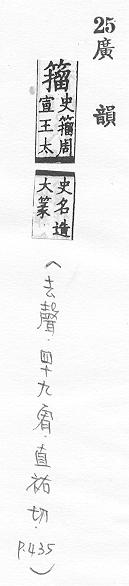 25
廣韻
籀史籀周
宣王太
史名造
大篆
（去聲．四十九宥．直祐切．P.435）